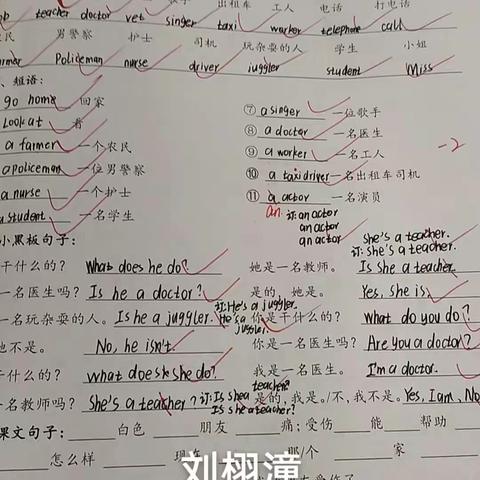 出租车 工人 电话 打电话
teacher doctor vet singer taxi worker telephone call
农民 男警察 护士 司机 玩杂耍的人 学生 小姐
farmer Policeman nurse driver juggler student Miss
、短语:
go home 回家 ⑦ a singer 一位歌手
Look at 看 ⑧ a doctor 一名医生
a farmer 一个农民 ⑨ a worker 一名工人
-2
a policeman 一位男警察 ⑩ a taxi driver 一名出租车司机
a nurse 一个护士 ⑪ a actor 一名演员
a student 一名学生 an 订: an actor
an actor
an actor
She's a teacher.
小黑板句子: 订: She's a teacher.
干什么的? What does he do? 她是一名教师。 Is She a teacher
一名医生吗? Is he a doctor? 是的,她是。 Yes, She is.
订: He's a juggler.
一名玩杂耍的人。 Is he a juggler. He's a juggler. 你是干什么的? what do you do?
他不是。 No, he isn't 你是一名医生吗? Are you a doctor?
干什么的? what does she do? 我是一名医生。 I'm a doctor.
teacher?
一名教师吗? She's a teacher? 订: Is she a 是的,我是。/不,我不是。 Yes, I am, No
Is she a teacher?
课文句子: 白色 朋友 痛;受伤 能 帮助
怎么样 现在 那/个 家
刘栩潼